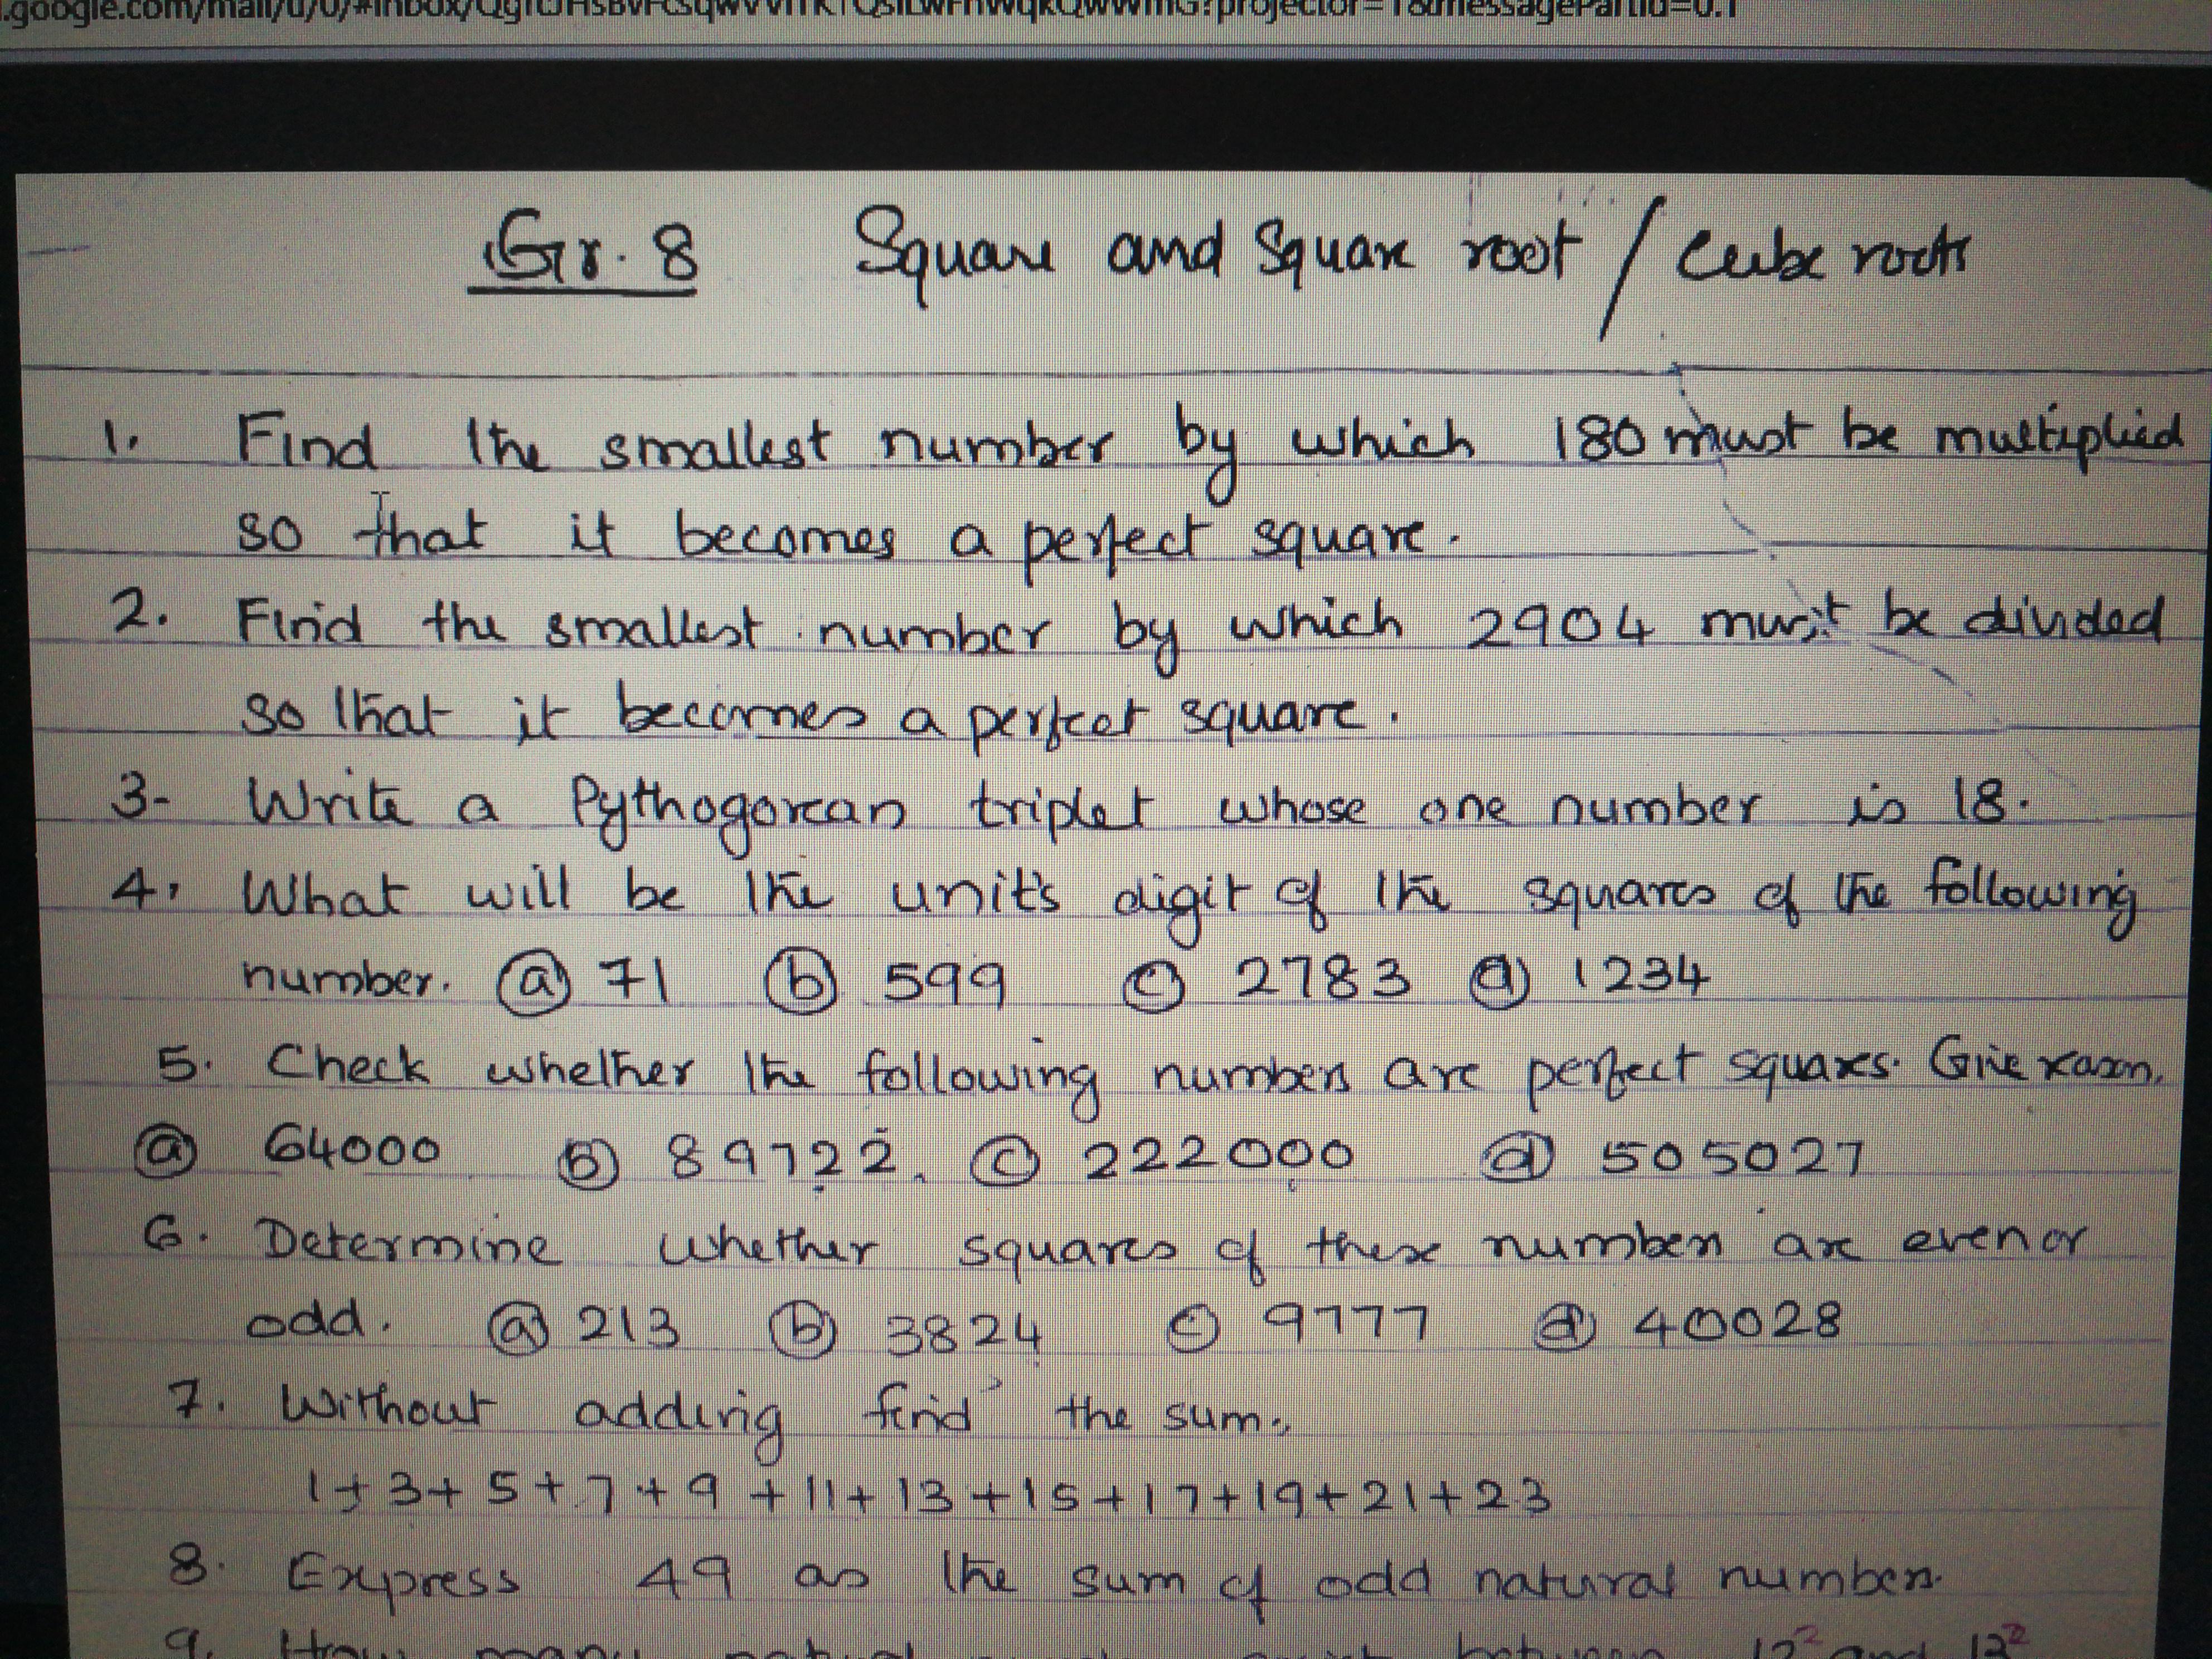 Gr. 8 Square and Square root / Cube roots
1. Find the smallest number by which 180 must be multiplied
so that it becomes a perfect square.
2. Find the smallest number by which 2904 must be divided
so that it becomes a perfect square.
3- Write a Pythogorean triplet whose one number is 18.
4. What will be the unit's digit of the squares of the following
number. (a) 71 (b) 599 (c) 2783 (d) 1234
5. Check whether the following numbers are perfect squares. Give reason.
(a) 64000 (b) 89722. (c) 222000 (d) 505027
6. Determine whether squares of these numbers are even or
odd. (a) 213 (b) 3824 (c) 9777 (d) 40028
7. Without adding find the sum.
1+3+5+7+9+11+13+15+17+19+21+23
8. Express 49 as the sum of odd natural numbers.
9. How many natural between 12² and 13²